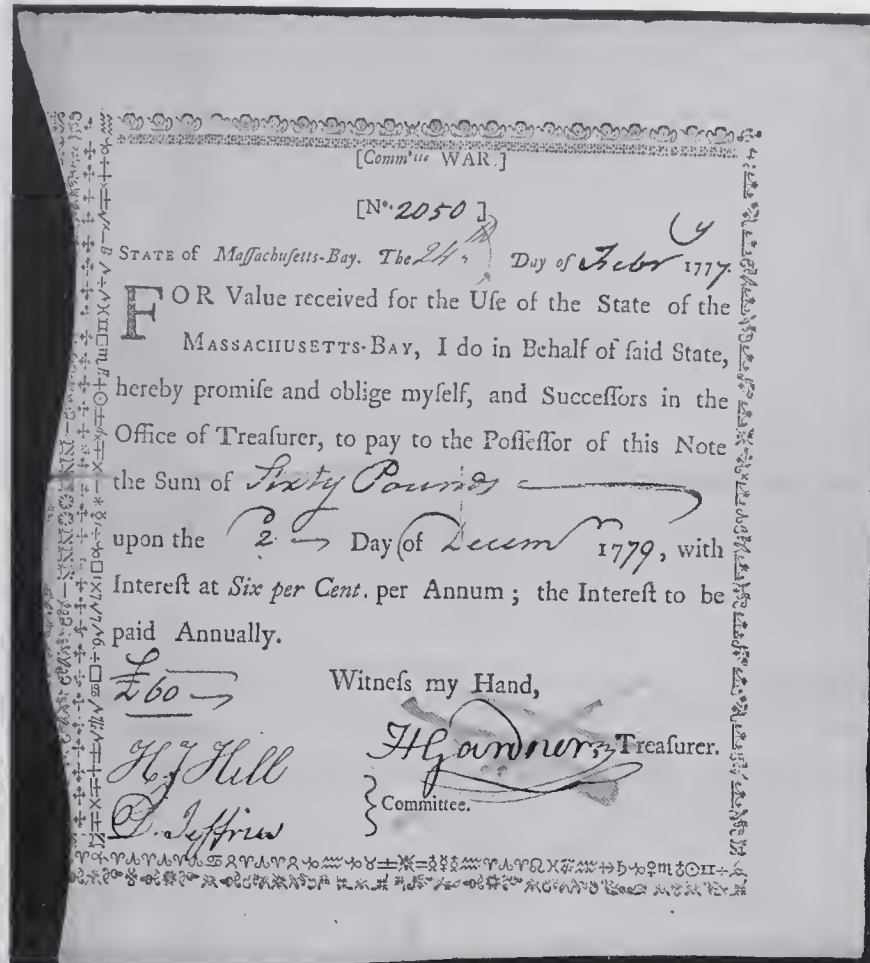 [Comm'tte WAR.]
[No. 2050]
STATE of Maſſachuſetts-Bay. The 24th Day of Febry 1777.
FOR Value received for the Uſe of the State of the
MASSACHUSETTS-BAY, I do in Behalf of ſaid State,
hereby promiſe and oblige myſelf, and Succeſſors in the
Office of Treaſurer, to pay to the Poſſeſſor of this Note
the Sum of Sixty Pounds
upon the 2 Day of Decemr 1779, with
Intereſt at Six per Cent. per Annum ; the Intereſt to be
paid Annually.
£60
Witneſs my Hand,
HGardner Treaſurer.
H J Hill
D. Jeffries
Committee.